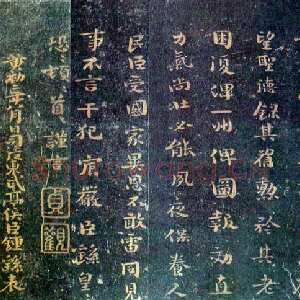 望聖德錄其舊勳矜其老
困復俾一州俾圖報効直
力氣尚壯必能夙夜保養人
民臣受國家異恩不敢雷同見
事不言干犯宸嚴臣繇皇
恐頓首謹言
貞觀
黃初二年八月日司徒東武亭侯臣鍾繇表